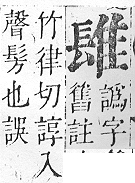 譌字
舊註
竹律切諄入
聲髣也誤